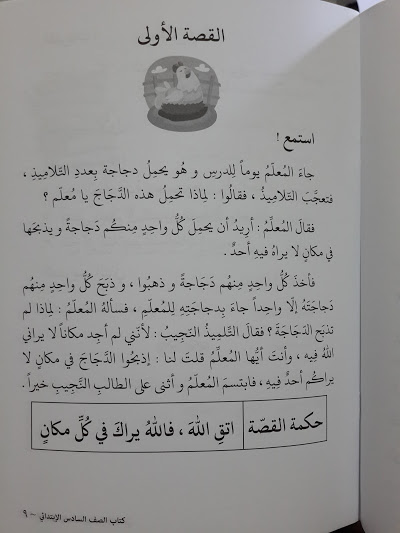 القصة الأولى
استمع !
جاءَ المُعلّمُ يوماً لِلدرسِ و هُو يحمِلُ دجاجة بِعددِ التّلاميذِ ،
فتعجَّبَ التّلاميذُ ، فقالُوا : لِماذا تحمِلُ هذه الدَّجَاجَ يا مُعلّم ؟
فقالَ المُعلِّمُ : أُريدُ أن يحمِلَ كُلُّ واحدٍ مِنكُم دَجاجةً و يذبَحَها
في مكانٍ لا يراهُ فيهِ أحدٌ .
فأخذَ كُلُّ واحِدٍ مِنهُم دَجَاجةً و ذهبُوا ، و ذبَحَ كُلُّ واحِدٍ مِنهُم
دَجَاجتَهُ إلّا واحِداً جاءَ بِدجاجَتِهِ لِلمُعلّمِ ، فسألَهُ المُعلّمُ : لِماذا لم
تذبَح الدَجَاجَةَ ؟ فقالَ التّلمِيذُ النّجيبُ : لأنّني لم أجِد مكاناً لا يراني
اللهُ فِيه ، وأنتَ أيُّها المُعلِّمُ قلتَ لنا : إذبحُوا الدَّجاجَ في مكانٍ لا
يراكُم أحدٌ فِيهِ ، فابتسَمَ المُعلّمُ و أثنى على الطالبِ النَّجِيبِ خيراً .
حكمة القصّة | اتقِ اللهَ ، فاللهُ يراكَ في كُلِّ مكانٍ
كتاب الصف السادس الإبتدائي – ٩